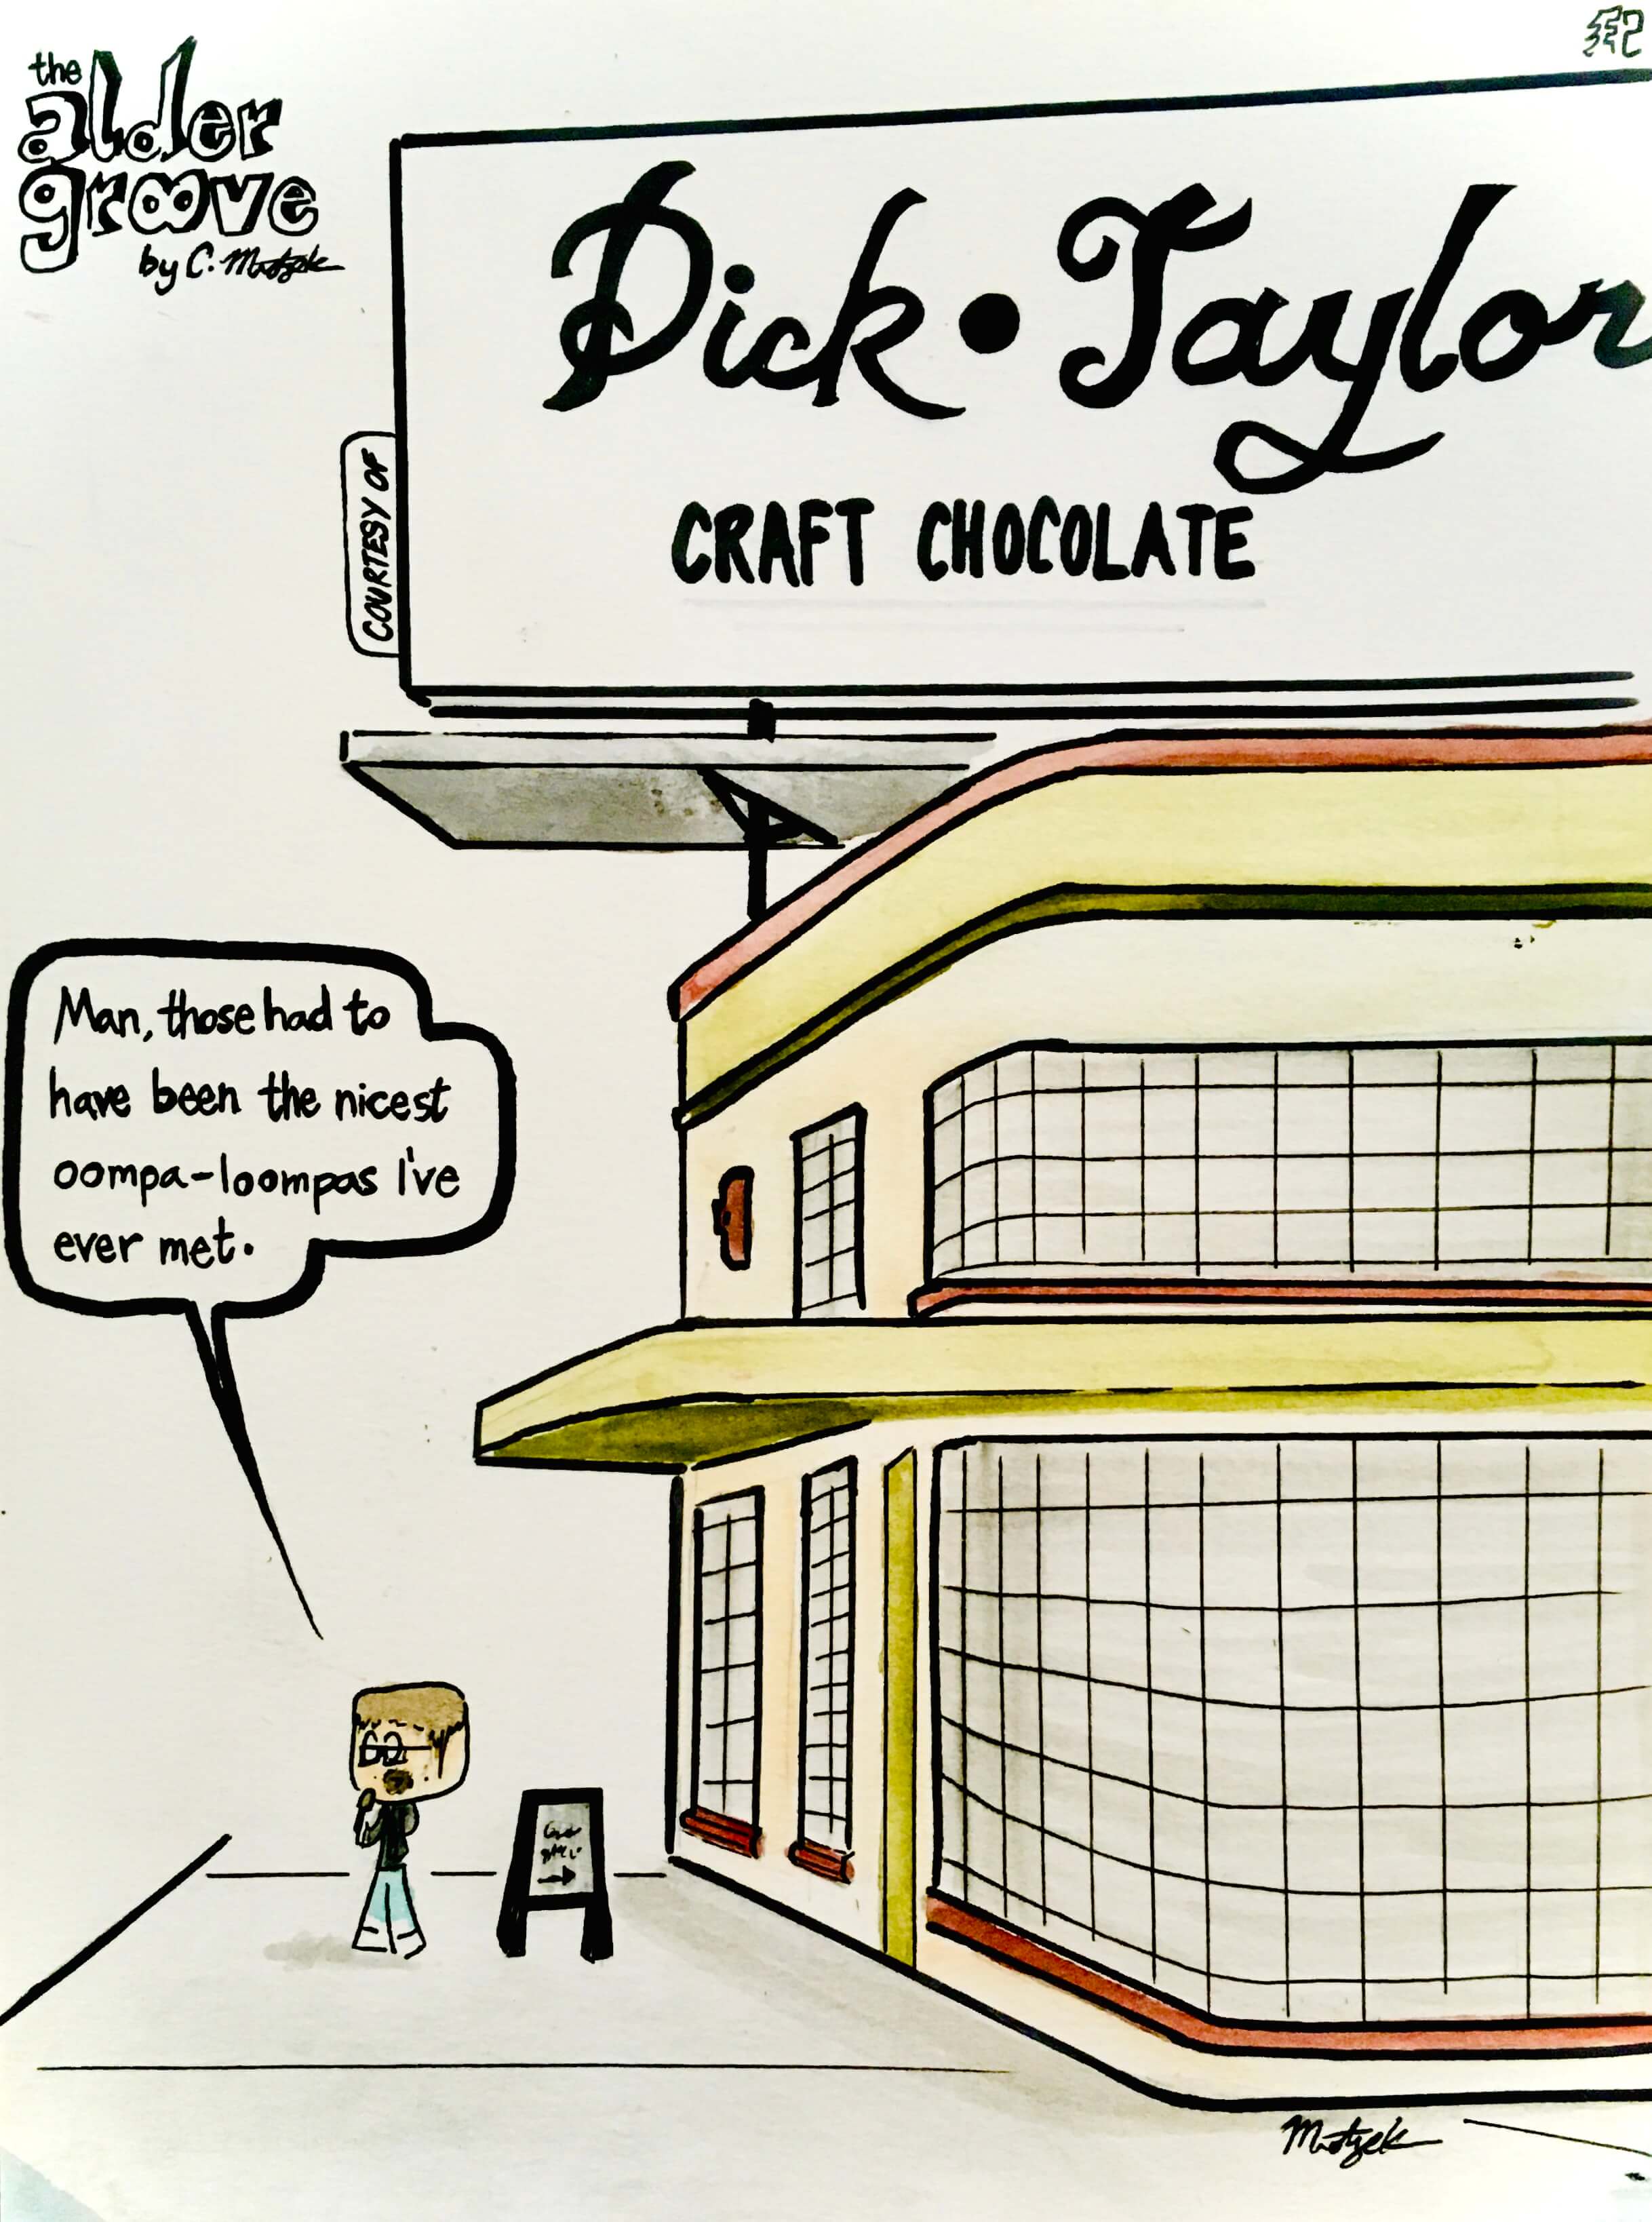 the
alder
groove
by C. Matzek
Dick • Taylor
CRAFT CHOCOLATE
COURTESY OF
Man, those had to
have been the nicest
oompa-loompas I've
ever met.
Matzek